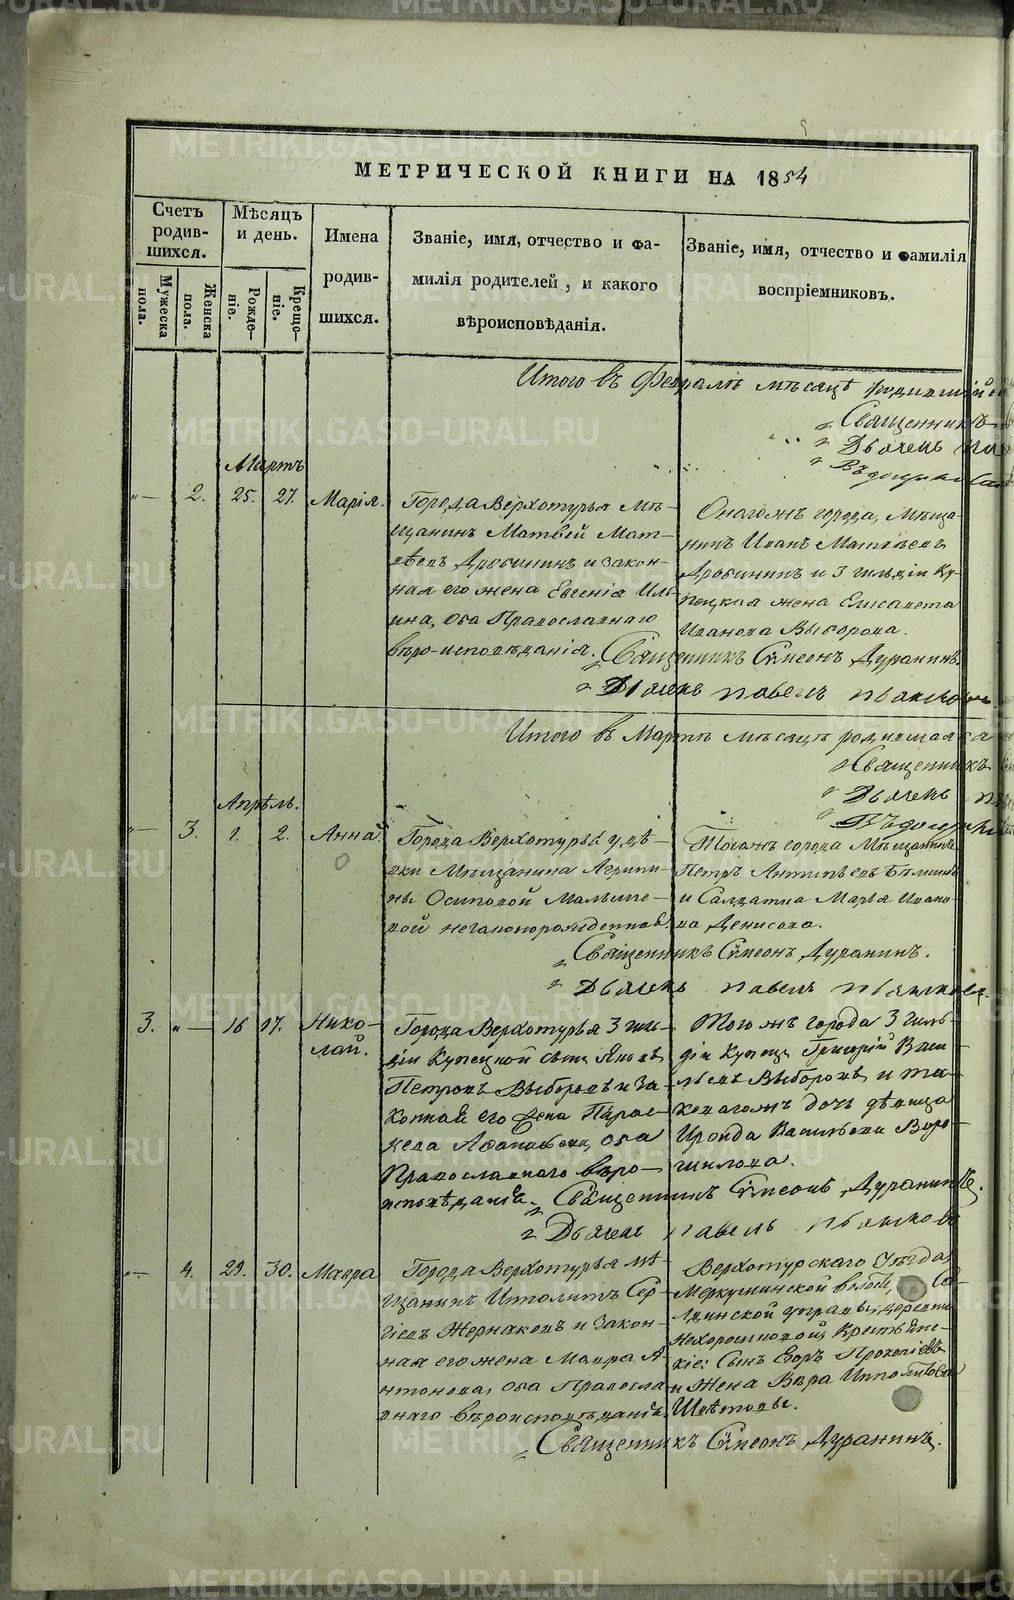 МЕТРИЧЕСКОЙ КНИГИ НА 1854
Счетъ
родив-
шихся.
Мѣсяцъ
и день.
Имена
родив-
шихся.
Званіе, имя, отчество и фа-
милія родителей, и какого
вѣроисповѣданія.
Званіе, имя, отчество и фамилія
воспріемниковъ.
Мужеска
пола.
Женска
пола.
Рожде-
ніе.
Креще-
ніе.
Итого въ Февралѣ мѣсяцѣ
Священникъ
Дьячекъ
Мартъ
2. 25. 27. Марія.
Города Верхотурья мѣ-
щанинъ Матвей Мат-
вѣевъ Дробининъ и закон-
ная его жена Евгенія Иль-
ина, оба Православнаго
вѣроисповѣданія.
Онагожъ города, мѣща-
нинъ Иванъ Матвѣевъ
Дробининъ и 3 гильдіи ку-
пецкая жена Елисавета
Иванова Выборова.
Священникъ Симеонъ Дуранинъ
Дьячекъ Павелъ Пьянковъ
Итого въ Мартѣ мѣсяцѣ родившаяся
Священникъ
Дьячекъ
Апрѣль.
3. 1. 2. Анна
Города Верхотурья у дѣ-
вки Мѣщанина Агрипи-
ны Осиповой
незаконорожденная.
Тогожъ города Мѣщанинъ
Петръ Антипьевъ
и Салдатка Марья Ивано-
ва Денисова.
Священникъ Симеонъ Дуранинъ.
Дьячекъ Павелъ Пьянковъ.
3. 16 17. Нико-
лай.
Города Верхотурья 3 гиль-
діи Купецкой сынъ Яковъ
Петровъ Выборовъ и за-
конная его жена Парас-
кева оба
Православнаго вѣро-
исповѣданія.
Тогожъ города 3 гиль-
діи Купецъ Григорій Васи-
льевъ Выборовъ и та-
ковагожъ дочь дѣвица
Ироида Васильева Воро-
шилова.
Священникъ Симеонъ Дуранинъ.
Дьячекъ Павелъ Пьянковъ
4. 29. 30. Мавра
Города Верхотурья мѣ-
щанинъ Иполитъ Сер-
гіевъ Жернаковъ и закон-
ная его жена Мавра А-
нтонова, оба Правосла-
внаго вѣроисповѣданія.
Верхотурскаго Уѣзда,
Меркушинской волости,
деревни
Нехорошковой, Крестьянс-
кіе: Сынъ Егоръ Прокопіевъ
и Жена Вѣра Ипполитова
Священникъ Симеонъ Дуранинъ.
METRIKI.GASO-URAL.RU